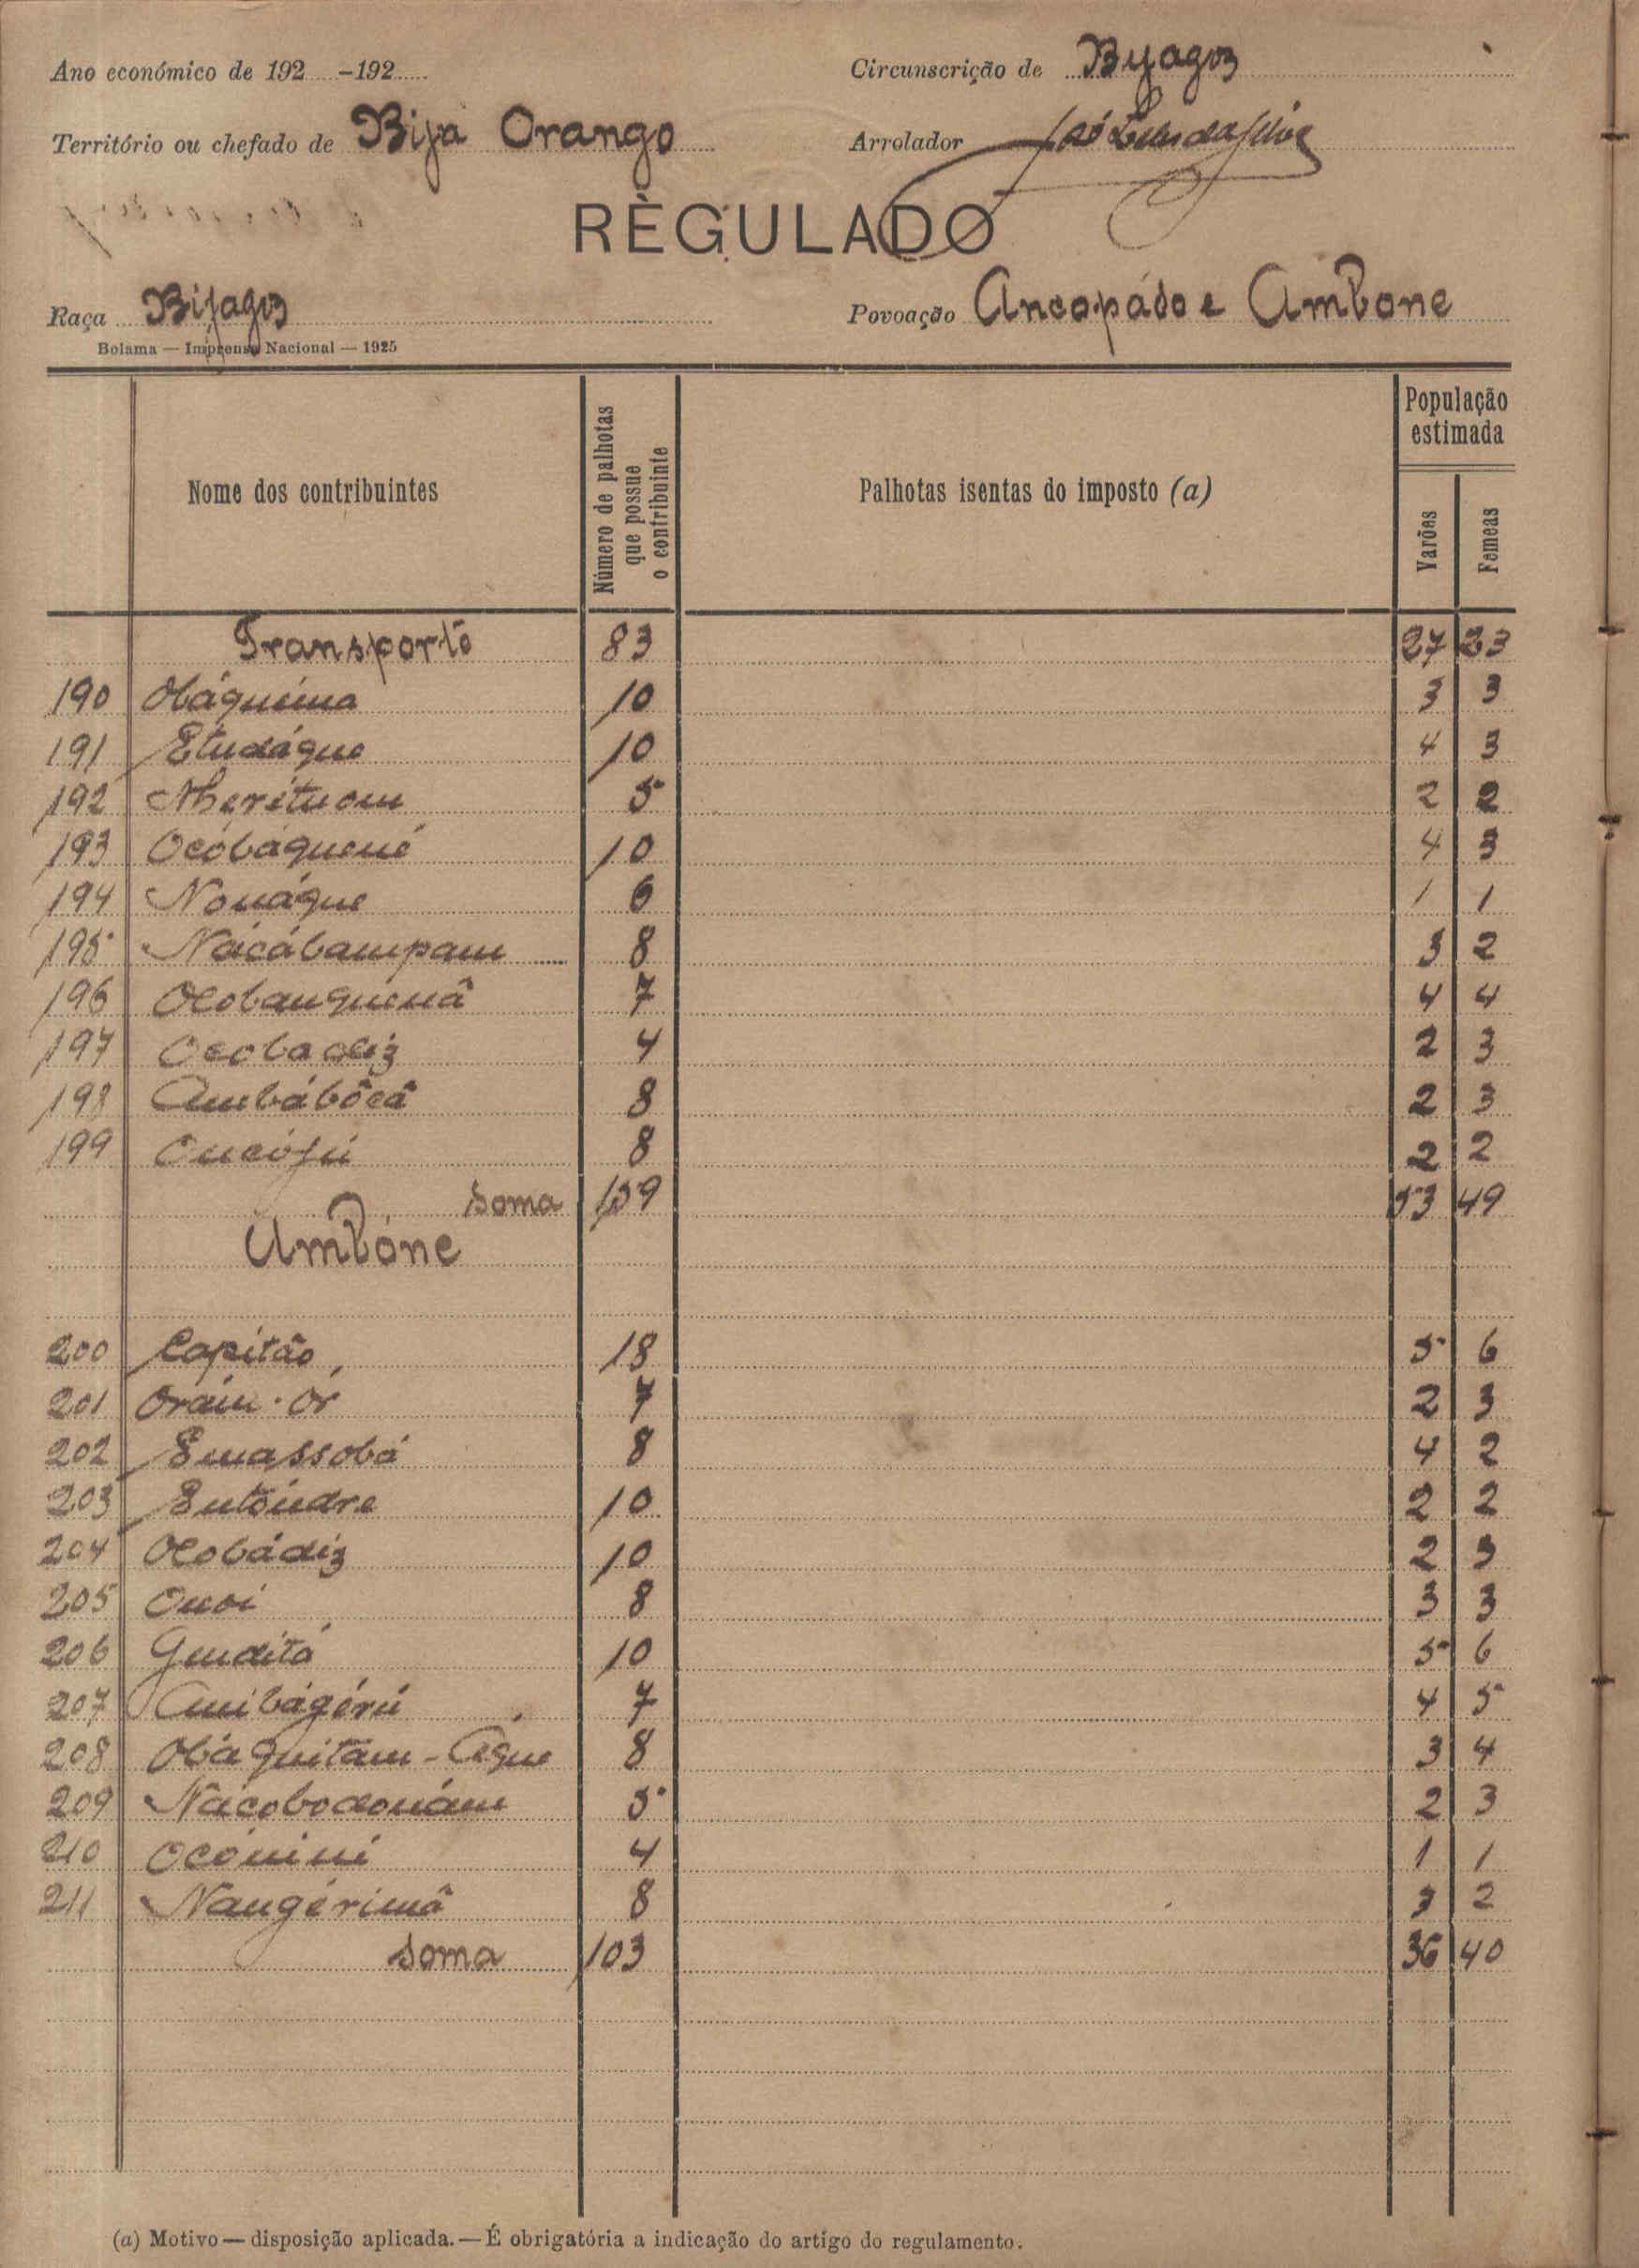 Ano económico de 192 -192
Circunscrição de Byagoz
Território ou chefado de Bija Orango
Arrolador José Luis da Silva
RÈGULADO
Raça Bijagoz
Povoação Ancopádo e Ambone
Bolama — Imprensa Nacional — 1925
Nome dos contribuintes
Número de palhotas que possue o contribuinte
Palhotas isentas do imposto (a)
População estimada
Varões
Femeas
Transporte 83 27 23
190 Obáqueima 10 3 3
191 Etudáque 10 4 3
192 Nherétuom 5 2 2
193 Ocóbáquené 10 4 3
194 Nouáque 6 1 1
195 Nácábampam 8 3 2
196 Ocobanquenâ 7 4 4
197 Ocobadiz 4 2 3
198 Ambábôcâ 8 2 3
199 Oncójú 8 2 2
Soma 159 53 49
Ambóne
200 Capitão 18 5 6
201 Oráin-Ór 7 2 3
202 Emassobá 8 4 2
203 Entoúdre 10 2 2
204 Ocobádiz 10 2 3
205 Onoi 8 3 3
206 Guditá 10 5 6
207 Anibágérú 7 4 5
208 Obáquitam-Águe 8 3 4
209 Nácobodonám 5 2 3
210 Ocónini 4 1 1
211 Naugérimâ 8 3 2
Soma 103 36 40
(a) Motivo — disposição aplicada. — É obrigatória a indicação do artigo do regulamento.